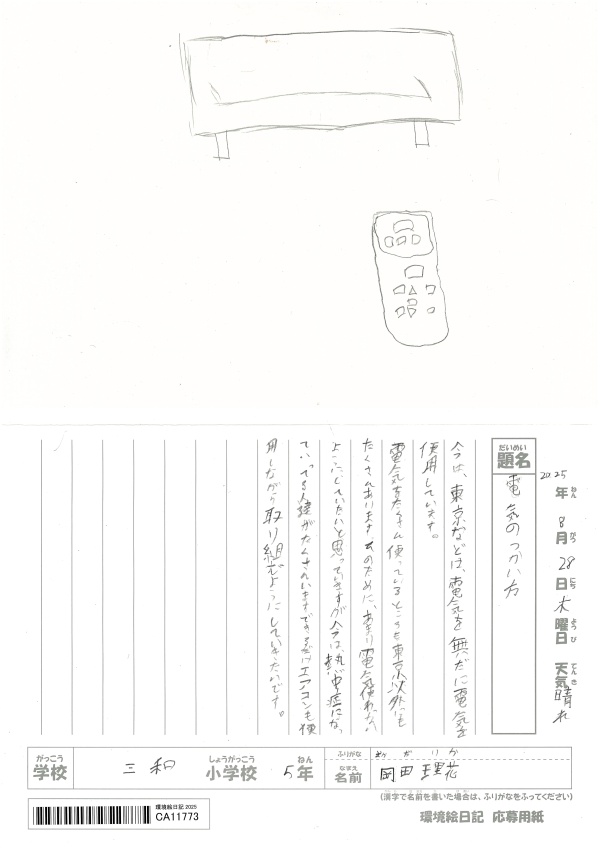 だいめい
題名
電気のつかい方
2025年ねん 8月がつ 28日にち 木曜日ようび 天気てんき 晴れ
今は、東京などは、電気を無だに電気を
使用しています。
電気をたくさん使っているところも東京以外にも
たくさんあります そのために、あまり電気使わない
ようにしていたいと思っていますが今は、熱中症になっ
ていってる人達がたくさんいますでできるだけエアコンも使
用しながら取り組むようにしていきたいです。
がっこう
学校
三和
しょうがっこう
小学校
5年ねん
ふりがな
おかだりか
なまえ
名前
岡田理花
(漢字で名前を書いた場合は、ふりがなをふってください)
環境絵日記 2025
CA11773
環境絵日記 応募用紙